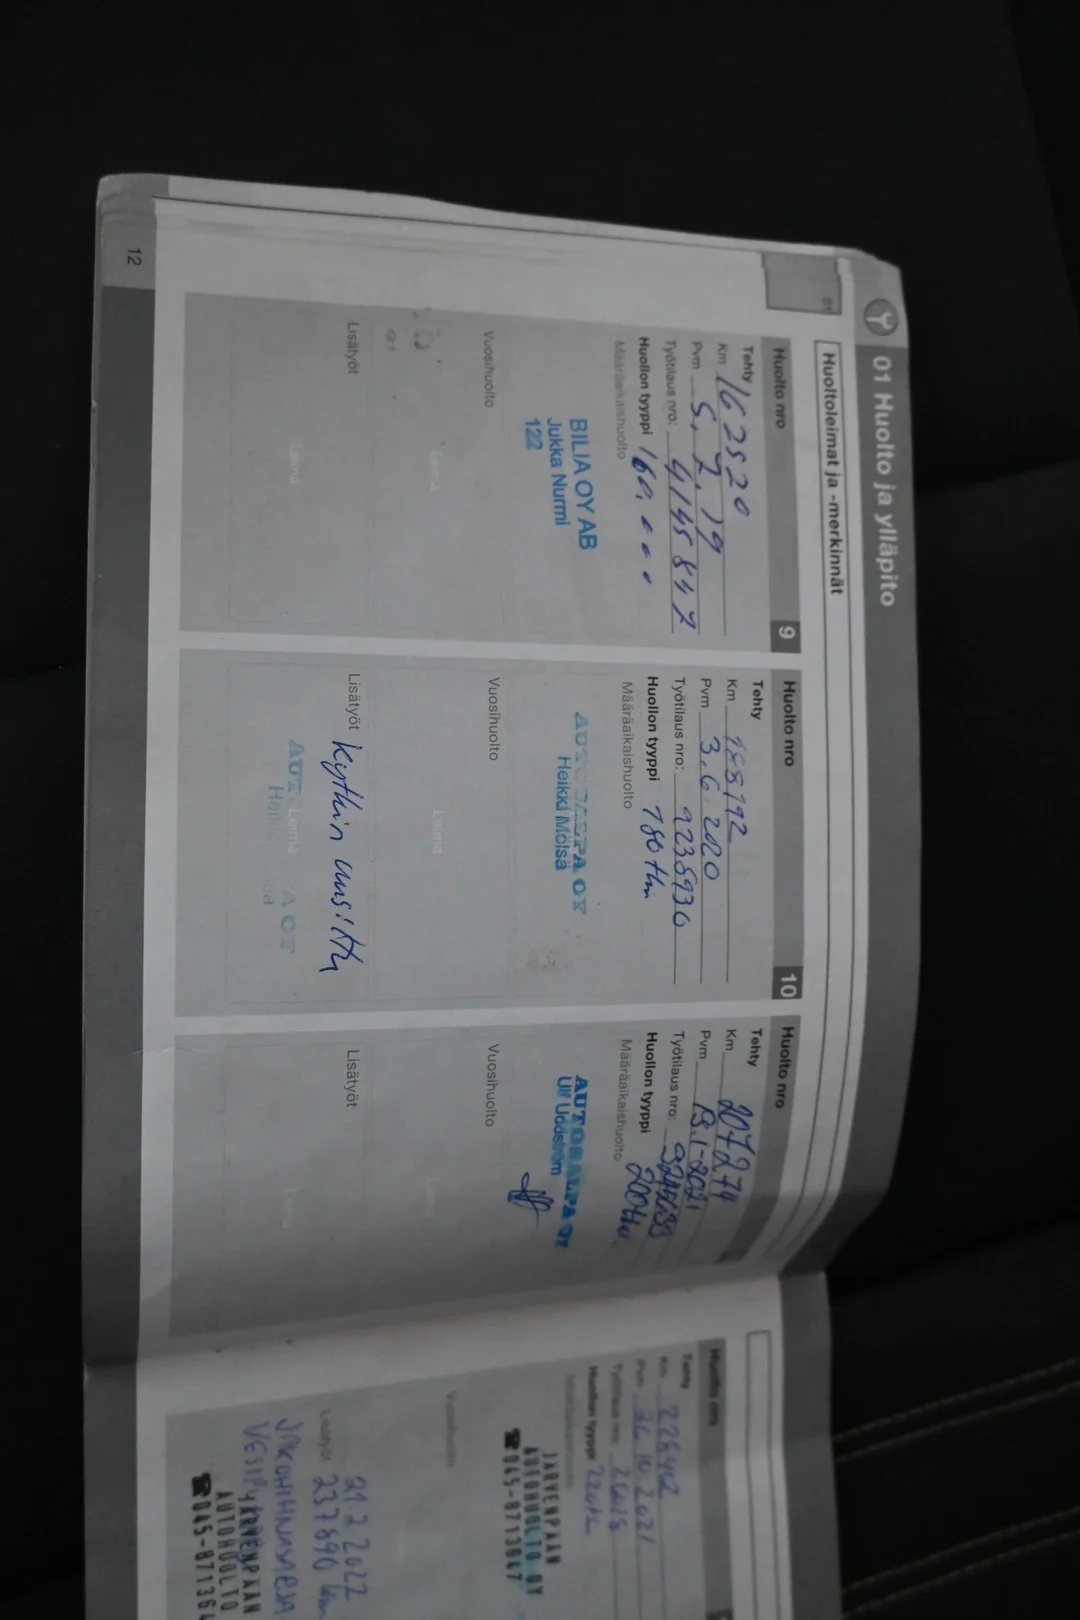 01 Huolto ja ylläpito
01
Huoltoleimat ja -merkinnät
Huolto nro 9
Tehty
Km 162520
Pvm 5.2.19
Työtilaus nro: 4145847
Huollon tyyppi 160.000
Määräaikaishuolto
BILIA OY AB
Jukka Nurmi
122
Vuosihuolto
Leima
Lisätyöt
Leima
Huolto nro 10
Tehty
Km 188192
Pvm 3.6.2020
Työtilaus nro: 9235930
Huollon tyyppi 180 thn
Määräaikaishuolto
AUTOSALPA OY
Heikki Mölsä
Vuosihuolto
Leima
Lisätyöt Kythin uusittu
Leima
Huolto nro
Tehty
Km 207274
Pvm 13.1-2021
Työtilaus nro: 9246633
Huollon tyyppi 200thn
Määräaikaishuolto
AUTOSALPA OY
Ulf Uddström
Vuosihuolto
Lisätyöt
Leima
12
Huolto nro
Tehty
Km 226462
Pvm 26.10.2021
Työtilaus nro:
Huollon tyyppi
Määräaikaishuolto
JÄRVENPÄÄN
AUTOHUOLTO OY
☎045-8713647
Vuosihuolto
21 2 2022
Lisätyöt 237890 km
JAKOHIHNASARJA
VESIPUMPPU
JÄRVENPÄÄN
AUTOHUOLTO
☎045-87136